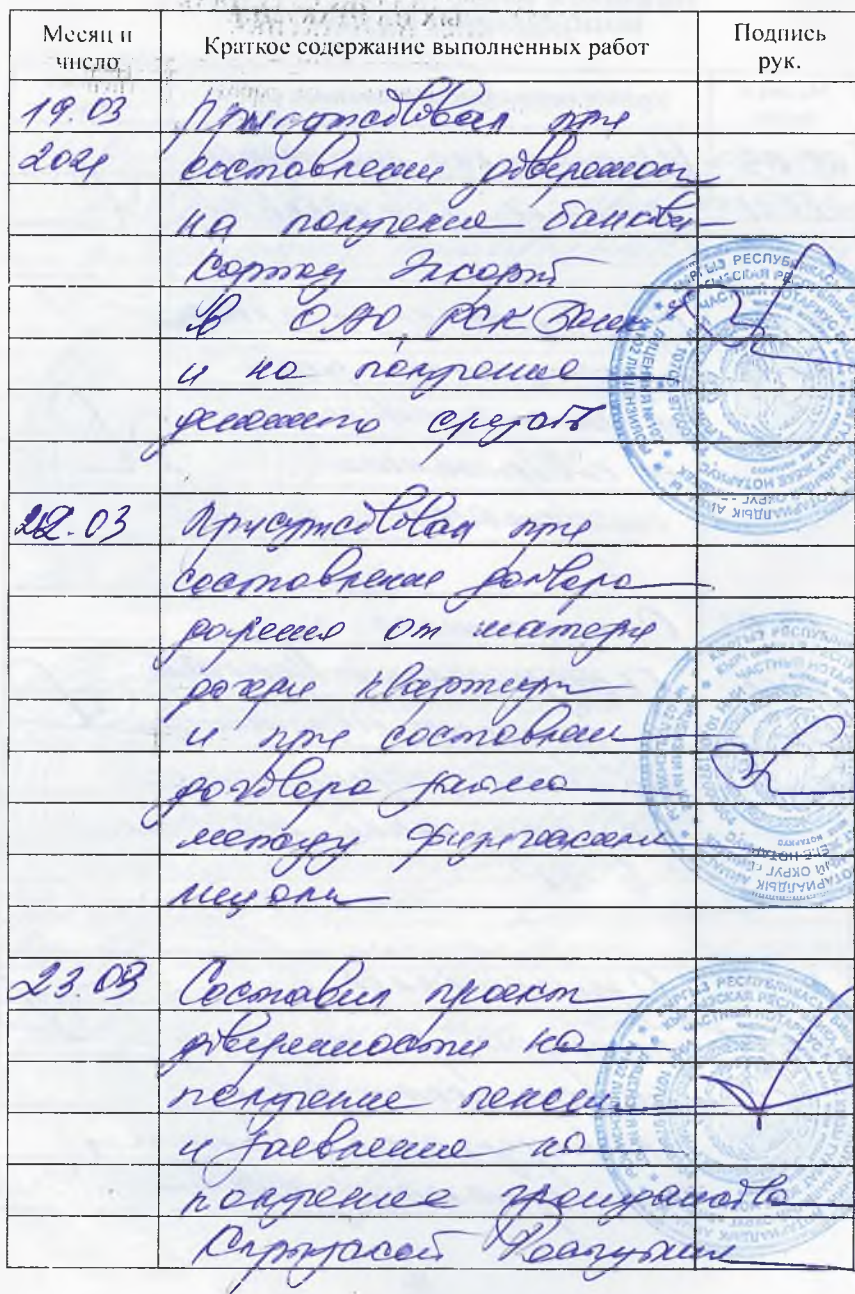 Месяц и число
Краткое содержание выполненных работ
Подпись рук.
19.03 Присутствовал при
2021 составлении доверенност
на получение банков
картоу Элкарт
в ОАО, РСК Банк
и на получение
денежно средств
22.03 Присутствовал при
составлении договора
дарения от матери
дочери квартиры
и при составлени
договора займа
между физическими
лицами
23.03 Составил проект
доверенности на
получение пенсии
и заевление на
получение гражданства
Кыргызской Республики